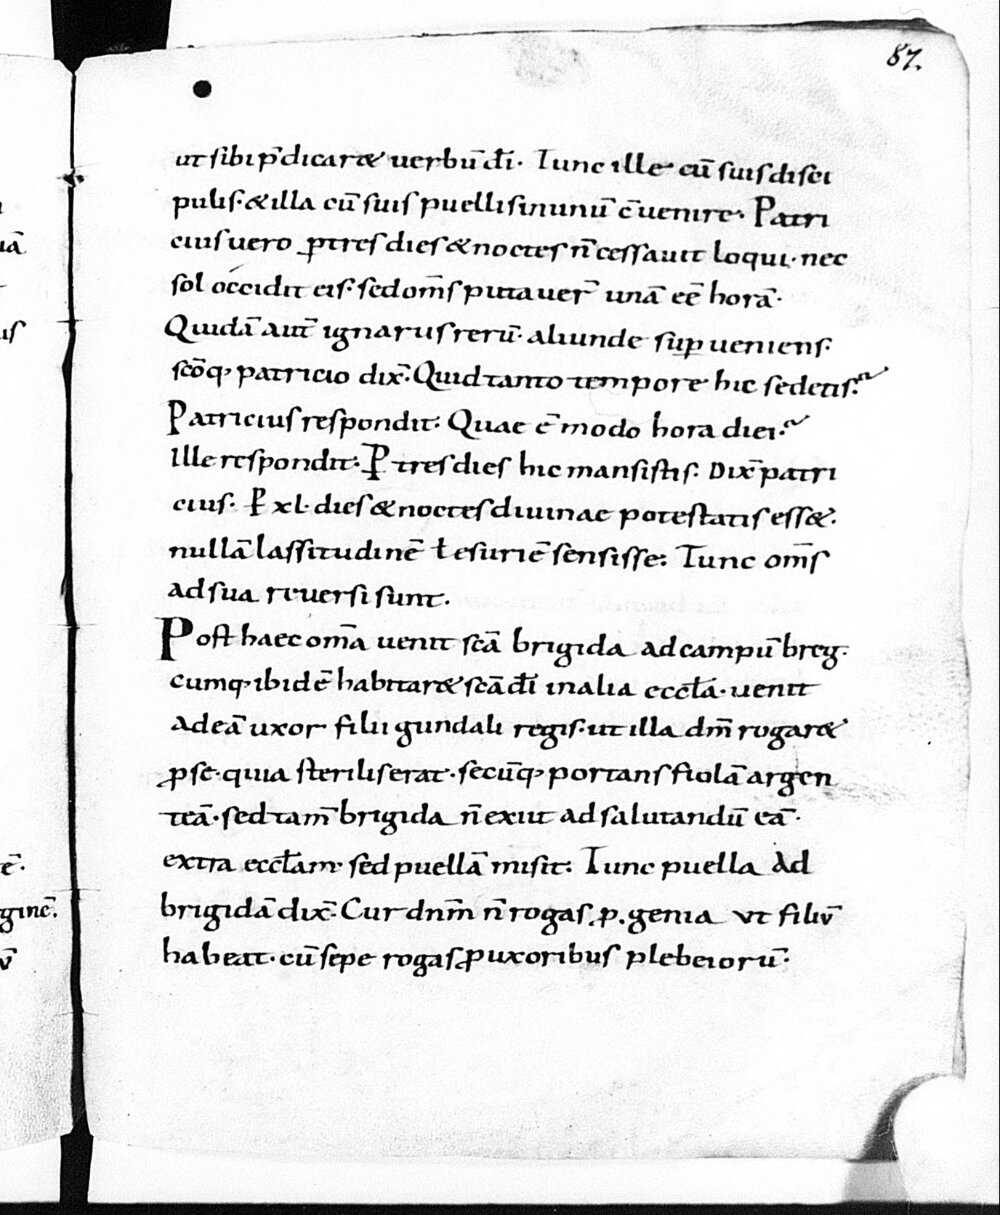 87.
ut sibi p̄dicar& uerbū dī. Tunc ille cū suis disci
pulis. & illa cū suis puellis inunū c̄uenire. Patri
cius uero ꝑ tres dies & noctes n̄ cessauit loqui. nec
sol occidit eis. sed om̄s putauer̄ unā eē horā.
Quidā aut̄ ignarus rerū. aliunde suꝑueniens.
sc̄oq; patricio dix̄. Quid tanto tempore hic sedetis?
Patricius respondit. Quae ē modo hora diei?
Ille respondit. Ꝑ tres dies hic mansistis. Dix̄ patri
cius. Ꝑ xl. dies & noctes diuinae potestatis ess&.
nullā lassitudinē ł esuriē sensisse. Tunc om̄s
ad sua reuersi sunt.
Post haec om̄a uenit sc̄a brigida ad campū breg.
cumq; ibidē habitar& sc̄a dī in alia eccł̄a. uenit
ad eā uxor filii gundali regis. ut illa dn̄m rogar&
ꝓ se. quia sterilis erat. secūq; portans fiolā argen
teā. sed tam̄ brigida n̄ exiit ad salutandū eā.
extra eccł̄am sed puellā misit. Tunc puella ad
brigidā dix̄. Cur dn̄m n̄ rogas. ꝓ. genia vt filiv̄
habeat. cū sepe rogas ꝓ uxoribus plebeiorū.